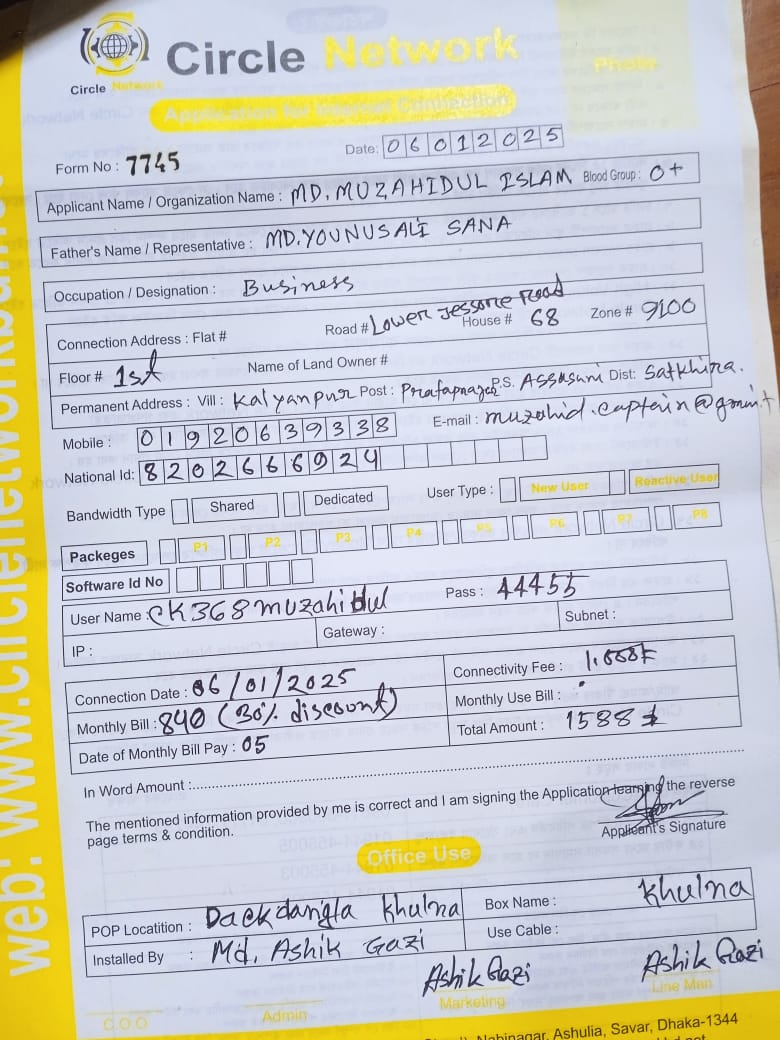 Circle Network
Circle Network
Photo
Application for Internet Connection
Form No : 7745
Date: 06012025
Applicant Name / Organization Name : MD. MUZAHIDUL ISLAM Blood Group : O+
Father's Name / Representative : MD. YOUNUS ALI SANA
Occupation / Designation : Business
Connection Address : Flat # Road # Lower Jessore Road House # 68 Zone # 9100
Floor # 1st Name of Land Owner #
Permanent Address : Vill : Kalyanpur Post : Pratapnagar P.S. Assasuni Dist: Satkhira.
Mobile : 01920639338 E-mail : muzahid.captain@gmai
National Id: 8202666924
Bandwidth Type Shared Dedicated User Type : New User Reactive User
Packeges P1 P2 P3 P4 P5 P6 P7 P8
Software Id No
User Name : CK368muzahidul Pass : 44455
IP : Gateway : Subnet :
Connection Date : 06/01/2025 Connectivity Fee :
Monthly Bill : 840 (30% discount) Monthly Use Bill :
Date of Monthly Bill Pay : 05 Total Amount : 1588
In Word Amount :
The mentioned information provided by me is correct and I am signing the Application learning the reverse
page terms & condition.
Applicant's Signature
Office Use
POP Locatition : Dackdangla Khulna Box Name : Khulna
Installed By : Md. Ashik Gazi Use Cable :
Ashik Gazi Ashik Gazi
C.O.O Admin Marketing Line Man
Nabinagar, Ashulia, Savar, Dhaka-1344
web: www.circlenetworkbd.net